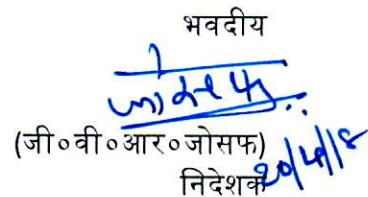 भवदीय
(जी०वी०आर०जोसफ)
निदेशक 20/4/18